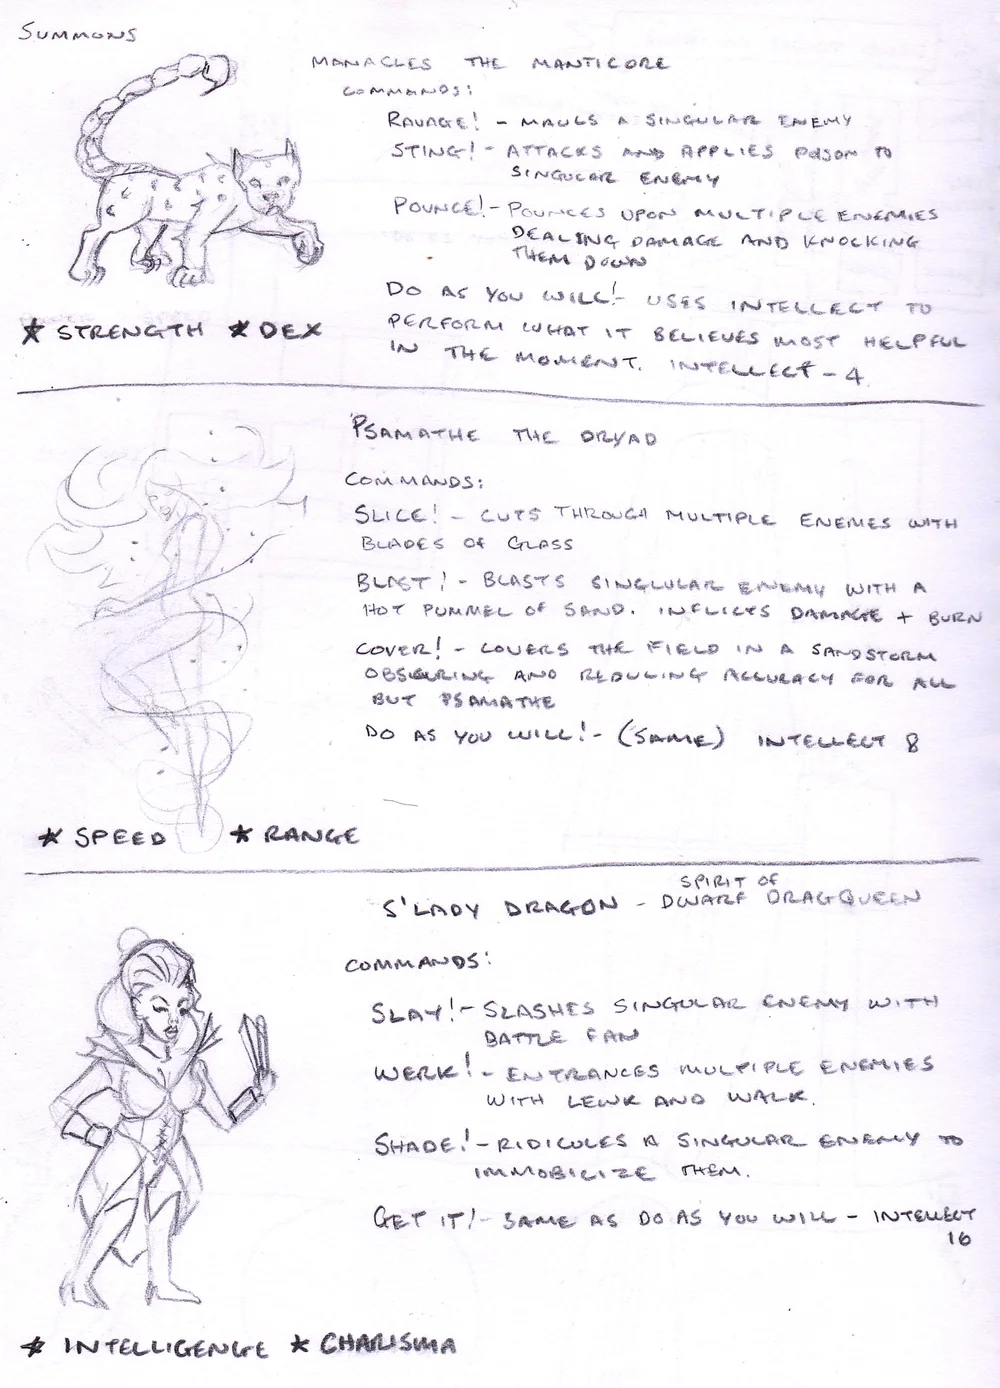 SUMMONS
MANACLES THE MANTICORE
COMMANDS:
RAVAGE! - MAULS A SINGULAR ENEMY
STING! - ATTACKS AND APPLIES POISON TO
SINGULAR ENEMY
POUNCE! - POUNCES UPON MULTIPLE ENEMIES
DEALING DAMAGE AND KNOCKING
THEM DOWN
DO AS YOU WILL! - USES INTELLECT TO
PERFORM WHAT IT BELIEVES MOST HELPFUL
IN THE MOMENT. INTELLECT - 4
★ STRENGTH ★ DEX
PSAMATHE THE DRYAD
COMMANDS:
SLICE! - CUTS THROUGH MULTIPLE ENEMES WITH
BLADES OF GLASS
BLAST! - BLASTS SINGLULAR ENEMY WITH A
HOT PUMMEL OF SAND. INFLICTS DAMAGE + BURN
COVER! - COVERS THE FIELD IN A SANDSTORM
OBSCURING AND REDUCING ACCURACY FOR ALL
BUT PSAMATHE
DO AS YOU WILL! - (SAME) INTELLECT 8
★ SPEED ★ RANGE
SPIRIT OF
S'LADY DRAGON - DWARF DRAGQUEEN
COMMANDS:
SLAY! - SLASHES SINGULAR ENEMY WITH
BATTLE FAN
WERK! - ENTRANCES MULTIPLE ENEMIES
WITH LEWK AND WALK.
SHADE! - RIDICULES A SINGULAR ENEMY TO
IMMOBILIZE THEM.
GET IT! - SAME AS DO AS YOU WILL - INTELLECT
16
★ INTELLIGENCE ★ CHARISMA